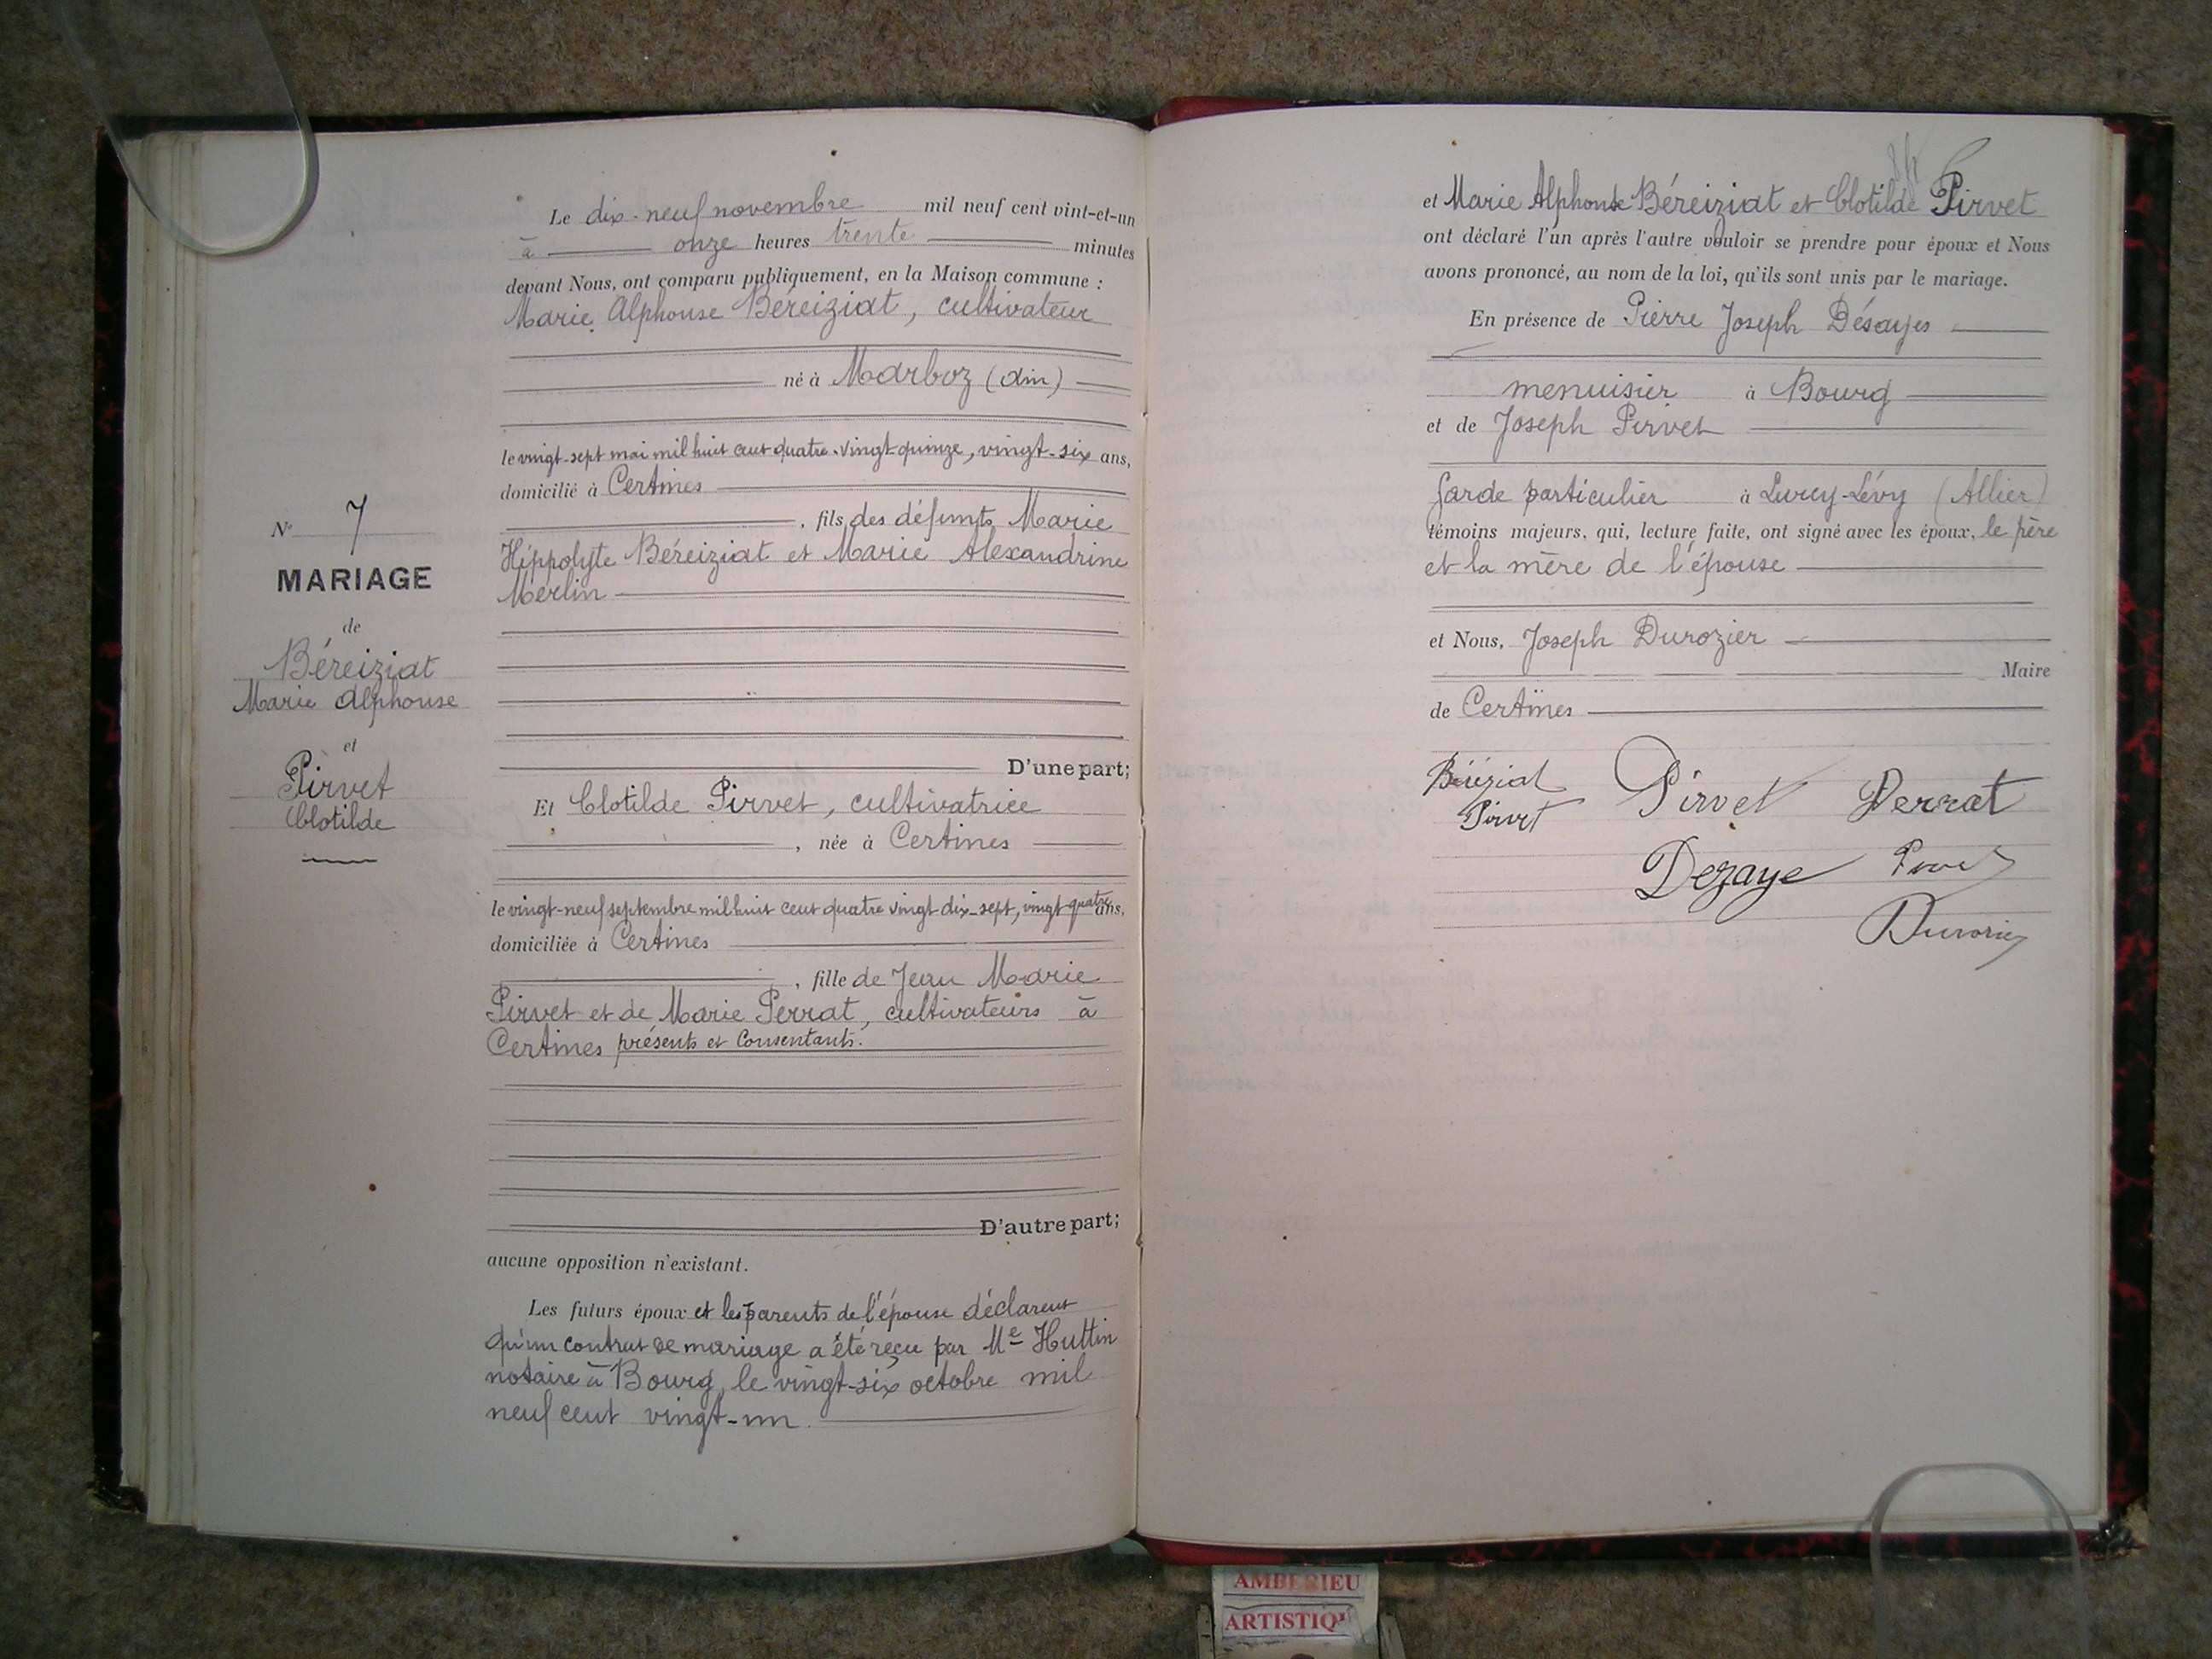 N° 7
MARIAGE
de
Béreiziat
Marie Alphonse
et
Pirvet
Clotilde
Le dix-neuf novembre mil neuf cent vint-et-un
à onze heures trente minutes
devant Nous, ont comparu publiquement, en la Maison commune :
Marie Alphonse Béreiziat, cultivateur
né à Marboz (Ain)
le vingt-sept mai mil huit cent quatre-vingt-quinze, vingt-six ans,
domicilié à Certines
, fils des défunts Marie
Hippolyte Béreiziat et Marie Alexandrine
Merlin
D'une part;
Et Clotilde Pirvet, cultivatrice
, née à Certines
le vingt-neuf septembre mil huit cent quatre vingt dix-sept, vingt quatre ans,
domiciliée à Certines
, fille de Jean Marie
Pirvet et de Marie Perrat, cultivateurs à
Certines présents et consentants.
D'autre part;
aucune opposition n'existant.
Les futurs époux et les parents de l'épouse déclarent
qu'un contrat de mariage a été reçu par Me Huttin
notaire à Bourg, le vingt-six octobre mil
neuf cent vingt-un.
et Marie Alphonse Béreiziat et Clotilde Pirvet
ont déclaré l'un après l'autre vouloir se prendre pour époux et Nous
avons prononcé, au nom de la loi, qu'ils sont unis par le mariage.
En présence de Pierre Joseph Désayes
menuisier à Bourg
et de Joseph Pirvet
garde particulier à Lurcy-Lévy (Allier)
témoins majeurs, qui, lecture faite, ont signé avec les époux, le père
et la mère de l'épouse
et Nous, Joseph Durozier
Maire
de Certines
Béréziat Pirvet Perrat
Pirvet
Dezaye
Durozier
AMBERIEU
ARTISTIQU